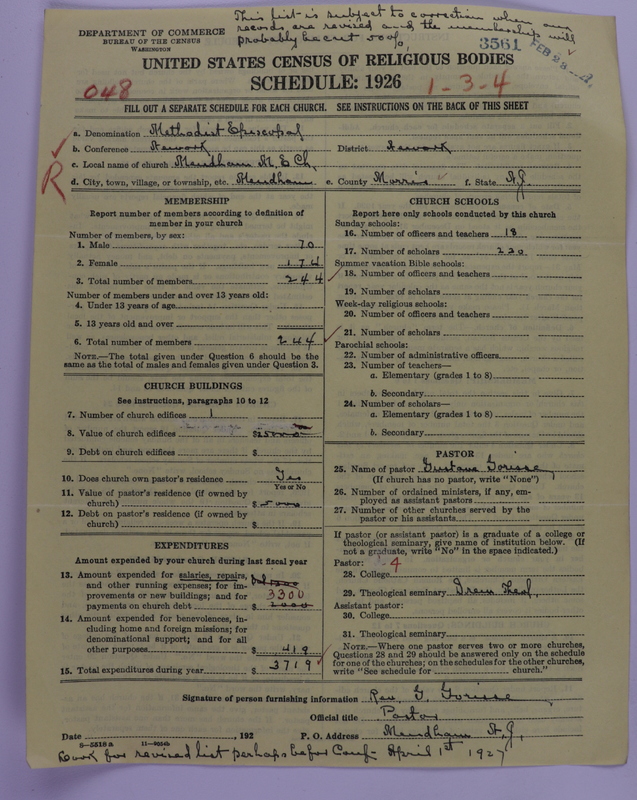 This list is subject to correction when our
records are revised and the membership will
probably be cut 50%
DEPARTMENT OF COMMERCE
BUREAU OF THE CENSUS
WASHINGTON
3561 FEB 23
UNITED STATES CENSUS OF RELIGIOUS BODIES
SCHEDULE: 1926
048
1-3-4
FILL OUT A SEPARATE SCHEDULE FOR EACH CHURCH. SEE INSTRUCTIONS ON THE BACK OF THIS SHEET
R
a. Denomination Methodist Episcopal
b. Conference Newark District Newark
c. Local name of church Mendham M. E. Ch.
d. City, town, village, or township, etc. Mendham e. County Morris f. State N.J.
MEMBERSHIP
Report number of members according to definition of
member in your church
Number of members, by sex:
1. Male 70
2. Female 174
3. Total number of members 244
Number of members under and over 13 years old:
4. Under 13 years of age
5. 13 years old and over
6. Total number of members 244
NOTE.—The total given under Question 6 should be
same as the total of males and females given under Question 3.
CHURCH BUILDINGS
See instructions, paragraphs 10 to 12
7. Number of church edifices 1
8. Value of church edifices $25000
9. Debt on church edifices $
10. Does church own pastor's residence Yes
Yes or No
11. Value of pastor's residence (if owned by
church) $5000
12. Debt on pastor's residence (if owned by
church) $
EXPENDITURES
Amount expended by your church during last fiscal year
13. Amount expended for salaries, repairs,
and other running expenses; for im-
provements or new buildings; and for
payments on church debt $
3300
14. Amount expended for benevolences, in-
cluding home and foreign missions; for
denominational support; and for all
other purposes $ 419
15. Total expenditures during year $ 3719
CHURCH SCHOOLS
Report here only schools conducted by this church
Sunday schools:
16. Number of officers and teachers 18
17. Number of scholars 220
Summer vacation Bible schools:
18. Number of officers and teachers
19. Number of scholars
Week-day religious schools:
20. Number of officers and teachers
21. Number of scholars
Parochial schools:
22. Number of administrative officers
23. Number of teachers—
a. Elementary (grades 1 to 8)
b. Secondary
24. Number of scholars—
a. Elementary (grades 1 to 8)
b. Secondary
PASTOR
25. Name of pastor Gustave Gorisse
(If church has no pastor, write "None")
26. Number of ordained ministers, if any, em-
ployed as assistant pastors
27. Number of other churches served by the
pastor or his assistants
If pastor (or assistant pastor) is a graduate of a college or
theological seminary, give name of institution below. (If
not a graduate, write "No" in the space indicated.)
Pastor: 4
28. College
29. Theological seminary Drew Theol.
Assistant pastor:
30. College
31. Theological seminary
NOTE.—Where one pastor serves two or more churches,
Questions 28 and 29 should be answered only on the schedule
for one of the churches; on the schedules for the other churches,
write "See schedule for church."
Signature of person furnishing information Rev. G. Gorisse
Official title Pastor
Date , 192 P. O. Address Mendham N.J.
8—5518a
Look for revised list perhaps before Conf. April 1st 1927